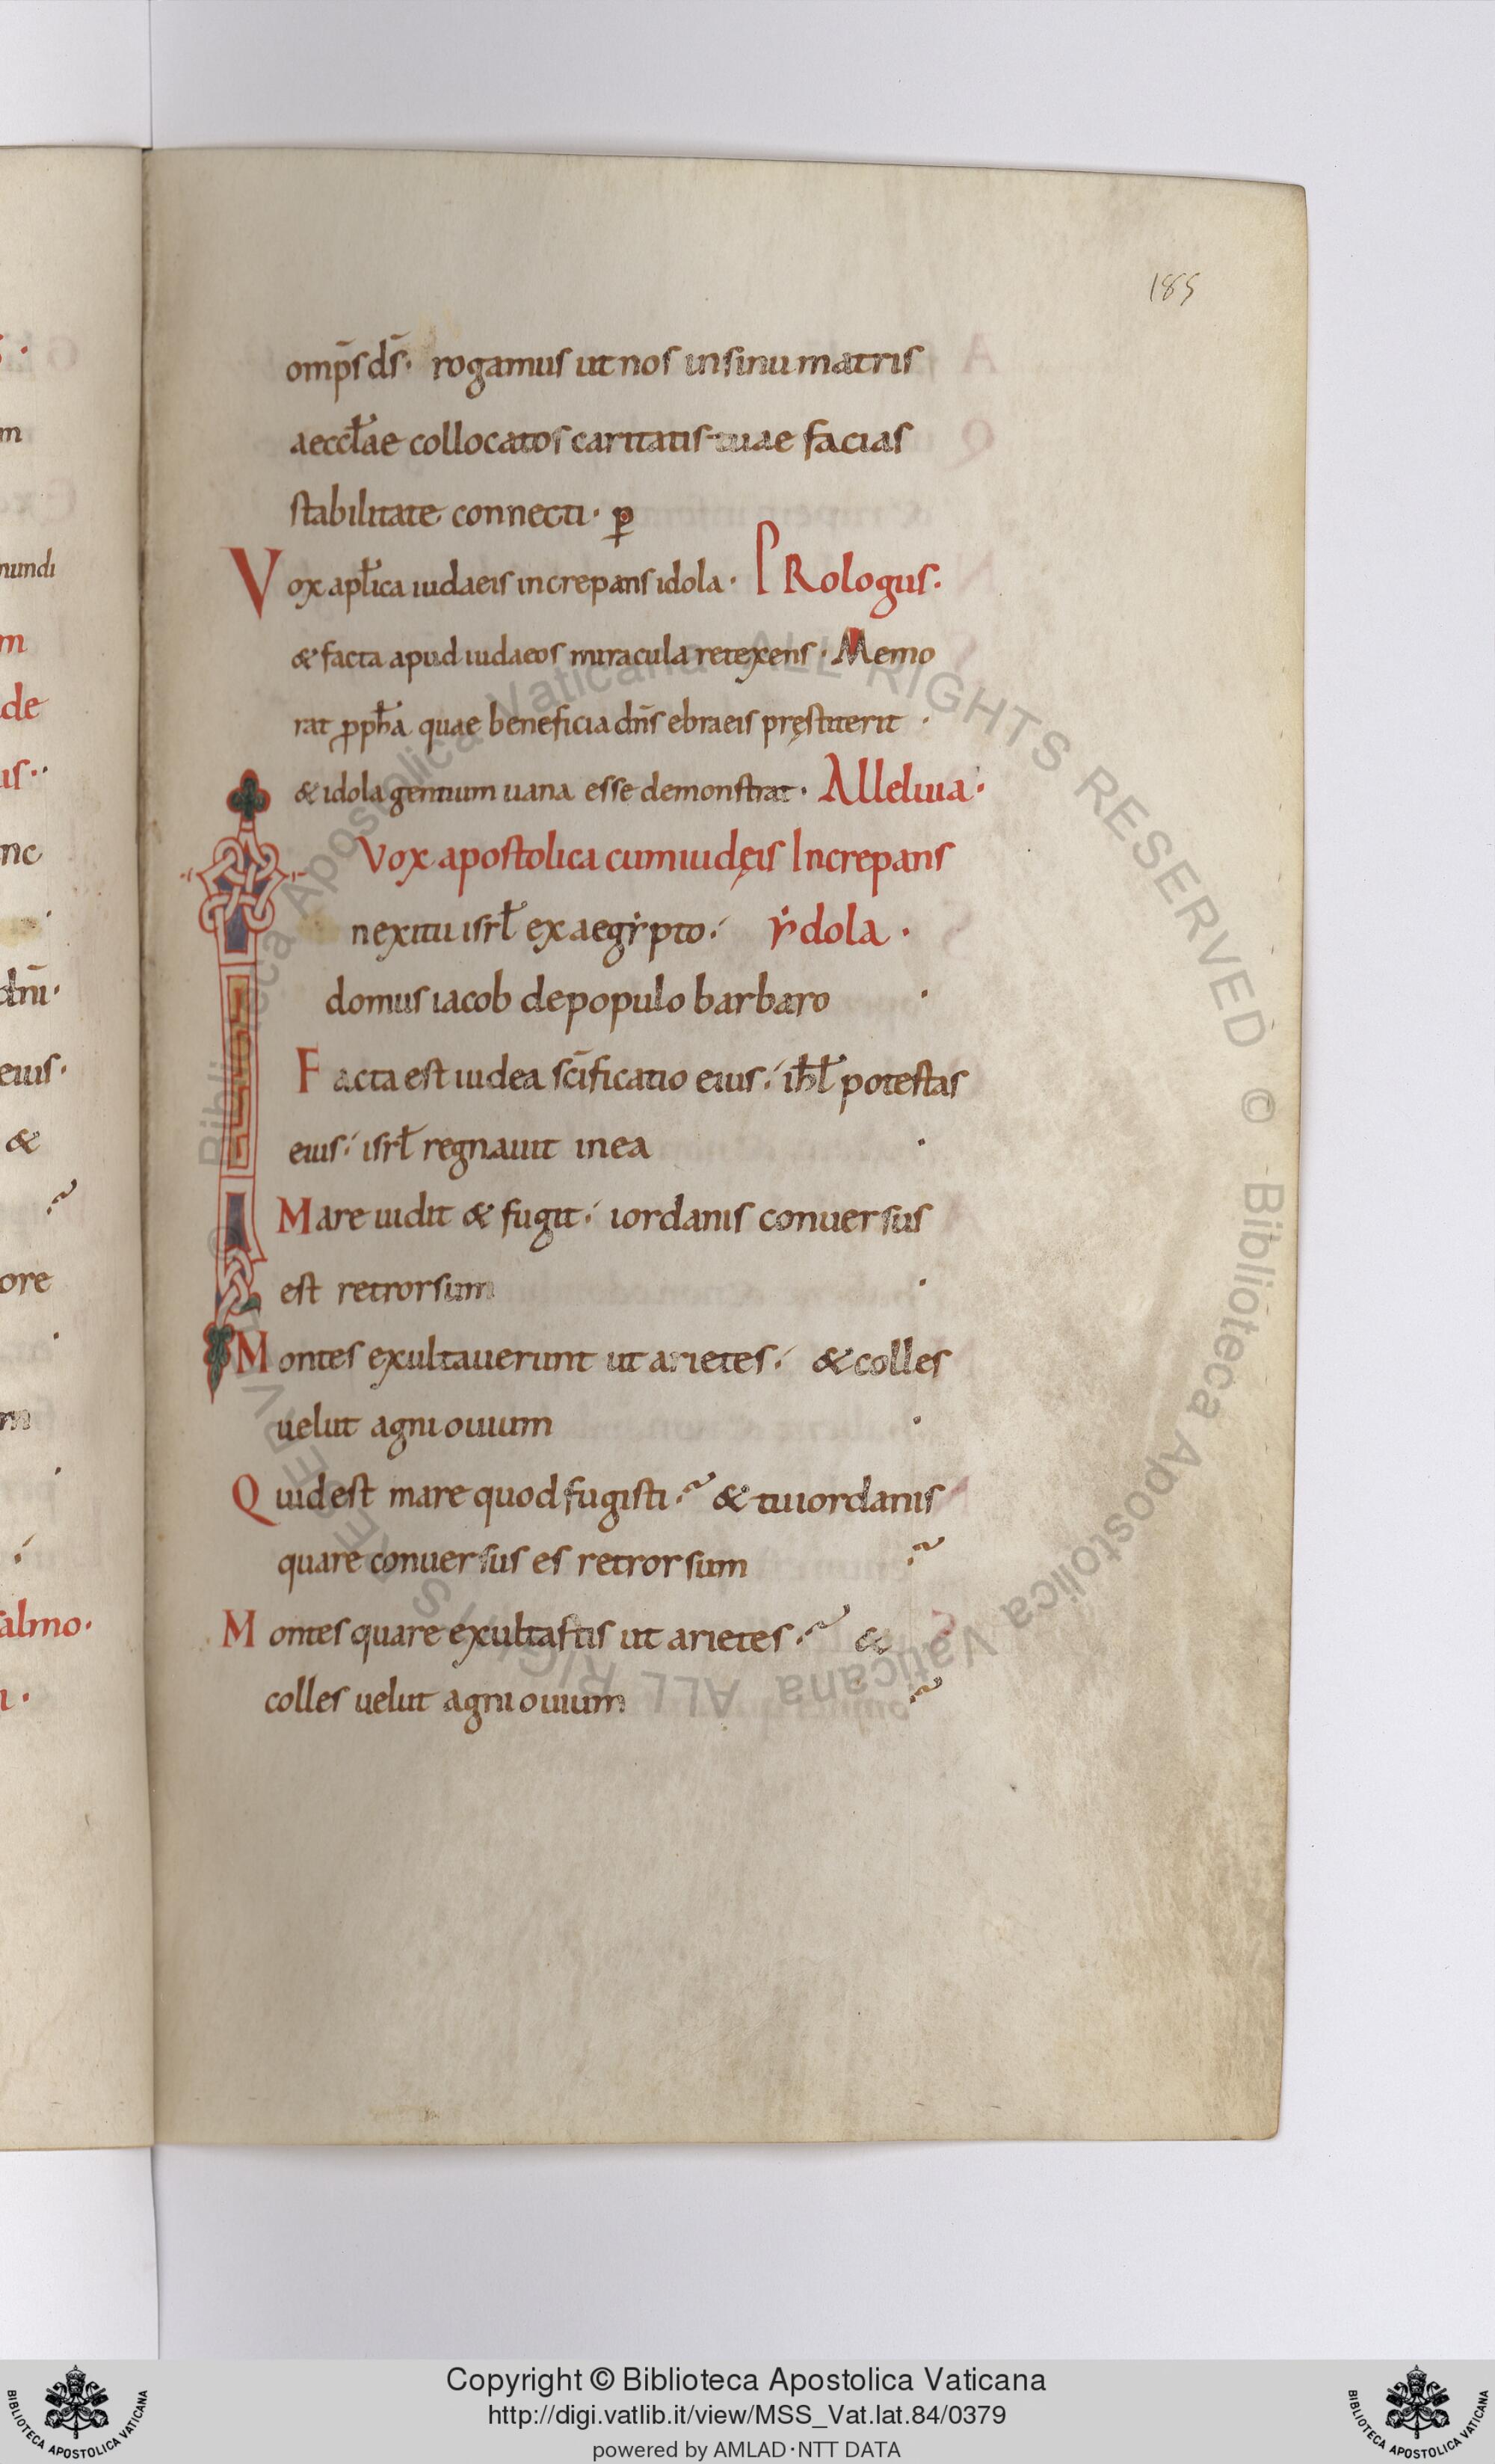 185
omp̄s d̄s · rogamus ut nos in sinu matris
aeccl̄ae collocatos caritatis tuae facias
stabilitate connecti · ꝑ
Vox apl̄ica iudaeis increpans idola · PRologus ·
& facta apud iudaeos miracula retexens · Memo
rat ꝓph̄a quae beneficia dn̄s ebraeis pręstiterit ·
& idola gentium uana esse demonstrat · Alleluia ·
Vox apostolica cum iudęis Increpans
In exitu isrl̄ ex aegẏpto ·́ ẏdola ·
domus iacob de populo barbaro ·
Facta est iudea sc̄ificatio eius ·́ ih̄l̄ potestas
eius ·́ isrl̄ regnauit in ea ·
Mare uidit & fugit ·́ iordanis conuersus
est retrorsum ·
Montes exultauerunt ut arietes ·́ & colles
uelut agni ouium ·
Quid est mare quod fugisti ·~ & tu iordanis
quare conuersus es retrorsum ·~
Montes quare exultastis ut arietes ·~ &
colles uelut agni ouium ·~
m
nundi
m
de
us ··
nc
·
dn̄i ·
eius ·
&
~
ore
·
m
·
·́
salmo ·
ı ·
© Biblioteca Apostolica Vaticana ALL RIGHTS RESERVED
© Biblioteca Apostolica Vaticana ALL RIGHTS RESERVED
Copyright © Biblioteca Apostolica Vaticana
http://digi.vatlib.it/view/MSS_Vat.lat.84/0379
powered by AMLAD·NTT DATA
BIBLIOTECA APOSTOLICA VATICANA
BIBLIOTECA APOSTOLICA VATICANA